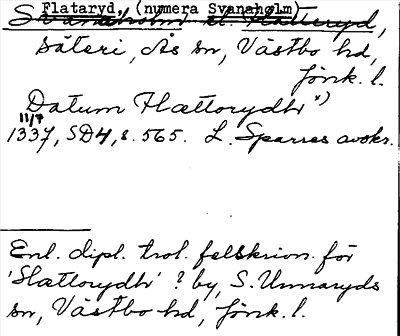 Flataryd, (numera Svanaholm)
Svanaholm el. Flatteryd,
säteri, Ås sn, Västbo hd,
Jönk. l.
Datum Flættorydhr *)
11/7
1337, SD4, s. 565. L. Sparres avskr.
Enl. dipl. trol. felskrivn. för
'Slættorydhr' ? by, S. Unnaryds
sn, Västbo hd, Jönk. l.